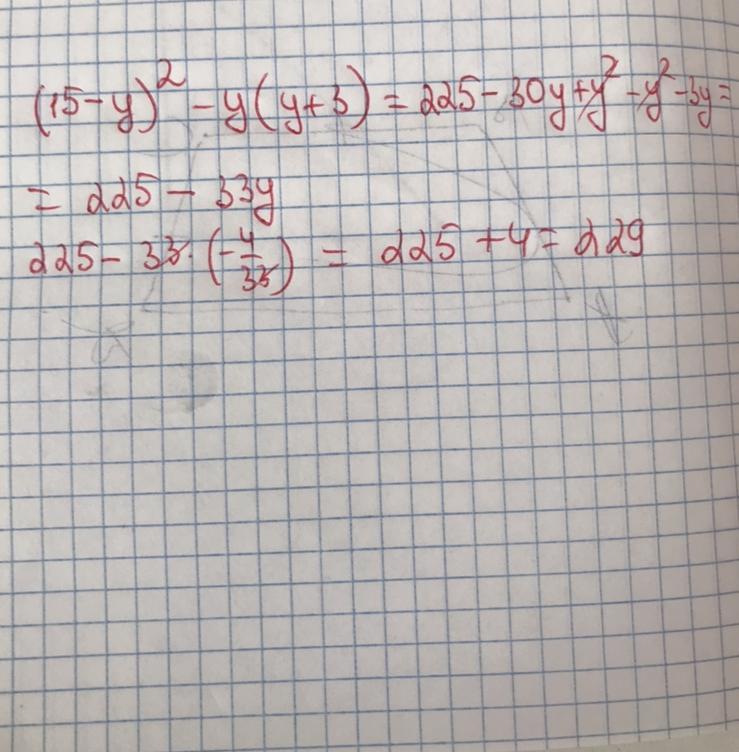 (15-y)² - y(y+3) = 225 - 30y + y² - y² - 3y =
= 225 - 33y
225 - 33 · (-4/33) = 225 + 4 = 229